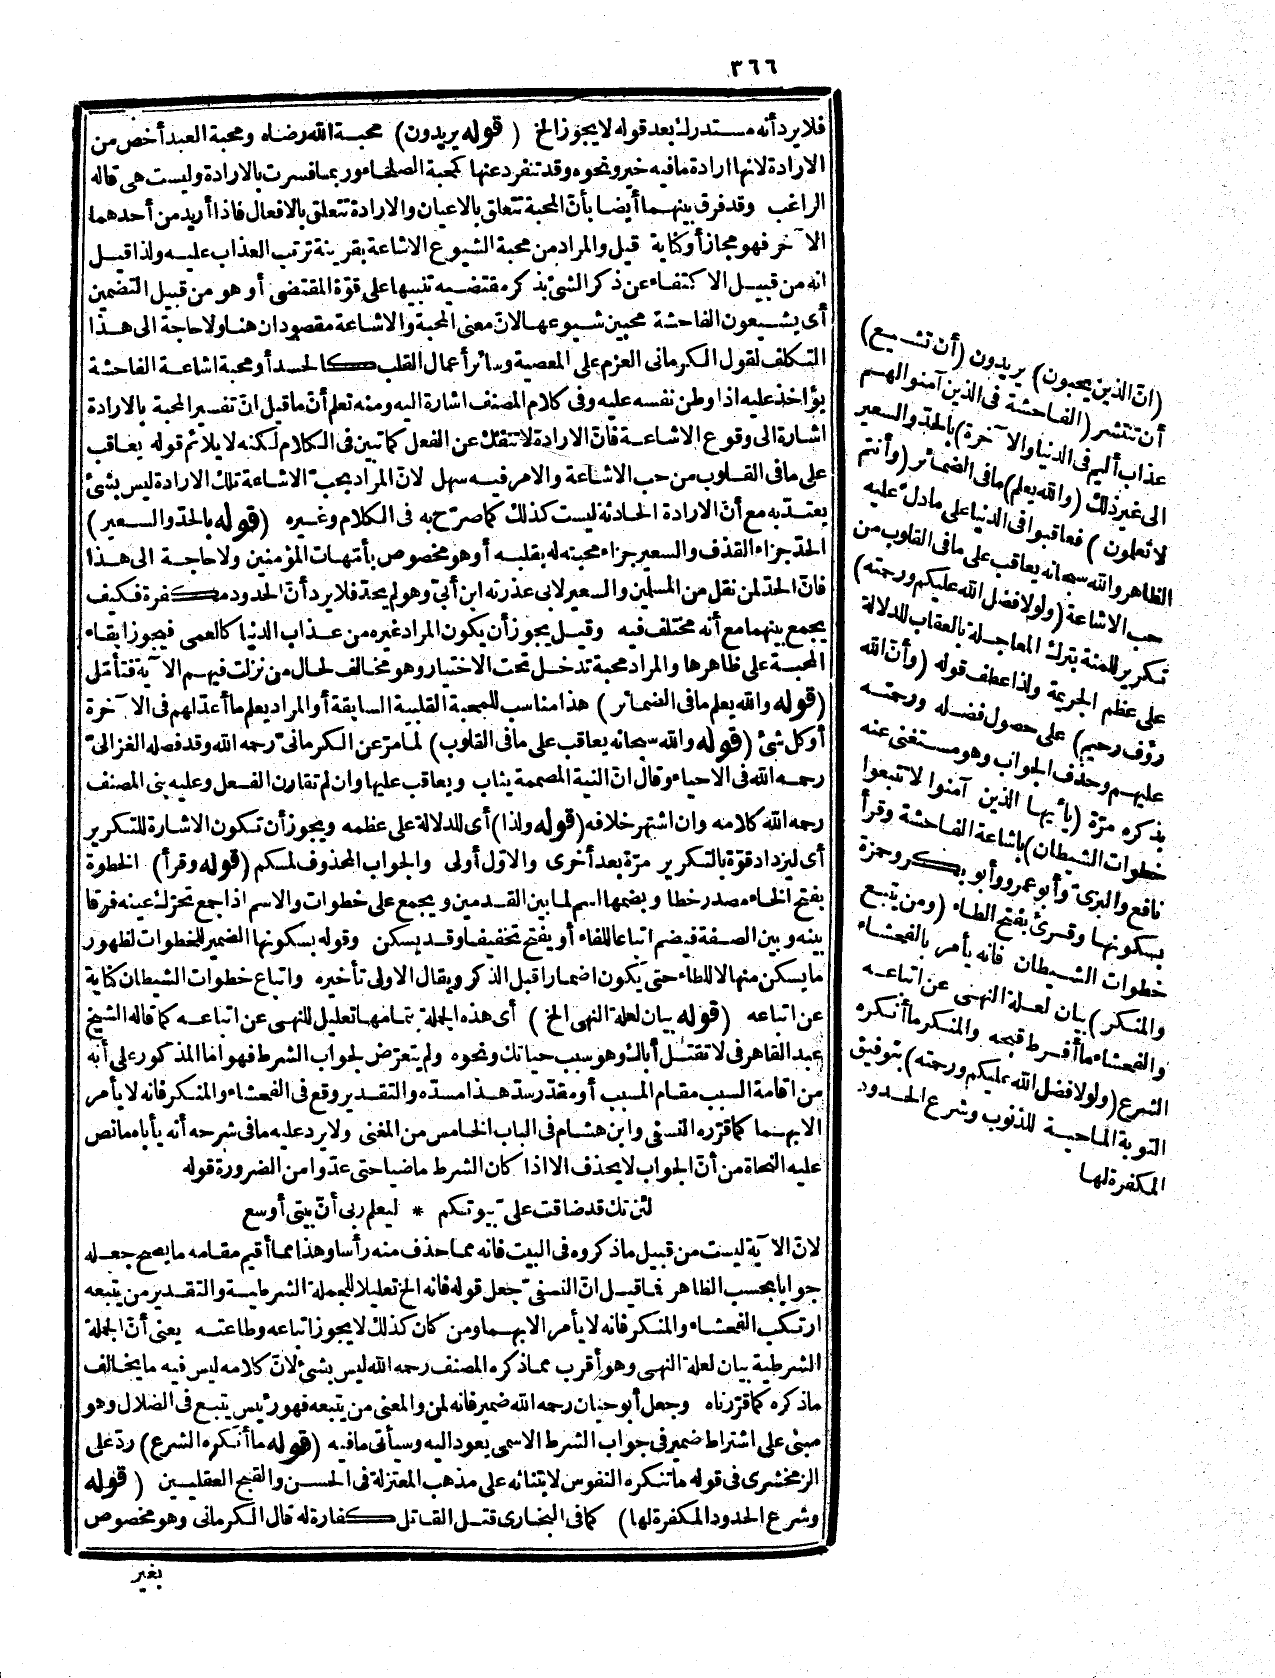 ٣٦٦
فلا يرد أنه مستدرك بعد قوله لا يجوز الخ (قوله يريدون) محبة الله رضاه ومحبة العبد أخص من
الارادة لانها ارادة ما فيه خير ونحوه وقد تنفرد عنها كمحبة الصلحاء وربما فسرت بالارادة وليست هى قاله
الراغب وقد فرق بينهما أيضا بأن المحبة تتعلق بالاعيان والارادة تتعلق بالافعال فاذا أريد من أحدهما
الآخر فهو مجاز أو كناية قيل والمراد من محبة الشيوع الاشاعة بقرينة ترتب العذاب عليه ولذا قيل
انه من قبيل الاكتفاء عن ذكر الشئ بذكر مقتضيه تنبيها على قوّة المقتضى أو هو من قبيل التضمين
أى يشيعون الفاحشة محبين شيوعها لانّ معنى المحبة والاشاعة مقصودان هنا ولا حاجة الى هذا
التكلف لقول الكرمانى العزم على المعصية وسائر أعمال القلب كالحسد أو محبة اشاعة الفاحشة
يؤاخذ عليه اذا وطن نفسه عليه وفى كلام المصنف اشارة اليه ومنه تعلم أنّ ما قيل انّ تفسير المحبة بالارادة
اشارة الى وقوع الاشاعة فانّ الارادة لا تنفك عن الفعل كما تبين فى الكلام لكنه لا يلائم قوله يعاقب
على ما فى القلوب من حب الاشاعة والامر فيه سهل لانّ المراد بحبّ الاشاعة تلك الارادة ليس بشئ
يعتدّ به مع أنّ الارادة الحادثة ليست كذلك كما صرّح به فى الكلام وغيره (قوله بالحدّ والسعير)
الحدّ جزاء القذف والسعير جزاء محبته له بقلبه أو هو مخصوص بأمّهات المؤمنين ولا حاجة الى هذا
فانّ الحدّ لمن نقل من المسلمين والسعير لابى عذرته ابن أبىّ وهو لم يحدّ فلا يرد أنّ الحدود مكفرة فكيف
يجمع بينهما مع أنه مختلف فيه وقيل يجوز أن يكون المراد غيره من عذاب الدنيا كالعمى فيجوز ابقاء
المحبة على ظاهرها والمراد محبة تدخل تحت الاختيار وهو مخالف لحال من نزلت فيهم الآية فتأمّل
(قوله والله يعلم ما فى الضمائر) هذا مناسب للمحبة القلبية السابقة أو المراد يعلم ما أعدّ لهم فى الآخرة
أو كل شئ (قوله والله سبحانه يعاقب على ما فى القلوب) لما مرّ عن الكرمانى رحمه الله وقد فصله الغزالى
رحمه الله فى الاحياء وقال انّ النية المصممة يثاب ويعاقب عليها وان لم تقارن الفعل وعليه بنى المصنف
رحمه الله كلامه وان اشتهر خلافه (قوله ولذا) أى للدلالة على عظمه ويجوز أن تكون الاشارة للتكرير
أى ليزداد قوّة بالتكرير مرّة بعد أخرى والاوّل أولى والجواب المحذوف لمسكم (قوله وقرأ) الخطوة
بفتح الخاء مصدر خطا وبضمها اسم لما بين القدمين ويجمع على خطوات والاسم اذا جمع تحرّك عينه فرقا
بينه وبين الصفة فيضم اتباعا للفاء أو يفتح تخفيفا وقد يسكن وقوله بسكونها الضمير للخطوات لظهور
ما يسكن منها لا للطاء حتى يكون اضمارا قبل الذكر ويقال الاولى تأخيره واتباع خطوات الشيطان كناية
عن اتباعه (قوله بيان لعلة النهى الخ) أى هذه الجملة بتمامها تعليل للنهى عن اتباعه كما قاله الشيخ
عبد القاهر فى لا تقتل أباك وهو سبب حياتك ونحوه ولم يتعرّض لجواب الشرط فهو امّا المذكور على أنه
من اقامة السبب مقام المسبب أو مقدّر سدّ هذا مسدّه والتقدير وقع فى الفحشاء والمنكر فانه لا يأمر
الا بهما كما قرّره النسفى وابن هشام فى الباب الخامس من المغنى ولا يرد عليه ما فى شرحه أنه يأباه ما نص
عليه النحاة من أنّ الجواب لا يحذف الا اذا كان الشرط ماضيا حتى عدّوا من الضرورة قوله
لئن تك قد ضاقت على بيوتكم * ليعلم ربى أنّ بيتى أوسع
لانّ الآية ليست من قبيل ما ذكروه فى البيت فانه مما حذف منه رأسا وهذا مما أقيم مقامه ما يصح جعله
جوابا بحسب الظاهر فما قيل انّ النسفىّ جعل قوله فانه الخ تعليلا للجملة الشرطية والتقدير من يتبعه
ارتكب الفحشاء والمنكر فانه لا يأمر الا بهما ومن كان كذلك لا يجوز اتباعه وطاعته يعنى أنّ الجملة
الشرطية بيان لعلة النهى وهو أقرب مما ذكره المصنف رحمه الله ليس بشئ لانّ كلامه ليس فيه ما يخالف
ما ذكره كما قرّرناه وجعل أبو حيان رحمه الله ضمير فانه لمن والمعنى من يتبعه فهو رئيس يتبع فى الضلال وهو
مبنى على اشتراط ضمير فى جواب الشرط الاسمى يعود اليه وسيأتى ما فيه (قوله ما أنكره الشرع) ردّ على
الزمخشرى فى قوله ما تنكره النفوس لابتنائه على مذهب المعتزلة فى الحسن والقبح العقليين (قوله
وشرع الحدود المكفرة لها) كما فى البخارى قتل القاتل كفارة له قال الكرمانى وهو مخصوص
بغير
(انّ الذين يحبون) يريدون (أن تشيع)
أن تنتشر (الفاحشة فى الذين آمنوا لهم
عذاب أليم فى الدنيا والآخرة) بالحدّ والسعير
الى غير ذلك (والله يعلم) ما فى الضمائر (وأنتم
لا تعلمون) فعاقبوا فى الدنيا على ما دلّ عليه
الظاهر والله سبحانه يعاقب على ما فى القلوب من
حب الاشاعة (ولولا فضل الله عليكم ورحمته)
تكرير للمنة بترك المعاجلة بالعقاب للدلالة
على عظم الجريمة ولذا عطف قوله (وأنّ الله
رؤف رحيم) على حصول فضله ورحمته
عليهم وحذف الجواب وهو مستغنى عنه
بذكره مرّة (يا أيها الذين آمنوا لا تتبعوا
خطوات الشيطان) باشاعة الفاحشة وقرأ
نافع والبزىّ وأبو عمرو وأبو بكر وحمزة
بسكونها وقرئ بفتح الطاء (ومن يتبع
خطوات الشيطان فانه يأمر بالفحشاء
والمنكر) بيان لعلة النهى عن اتباعه
والفحشاء ما أفرط قبحه والمنكر ما أنكره
الشرع (ولولا فضل الله عليكم ورحمته) بتوفيق
التوبة الماحية للذنوب وشرع الحدود
المكفرة لها